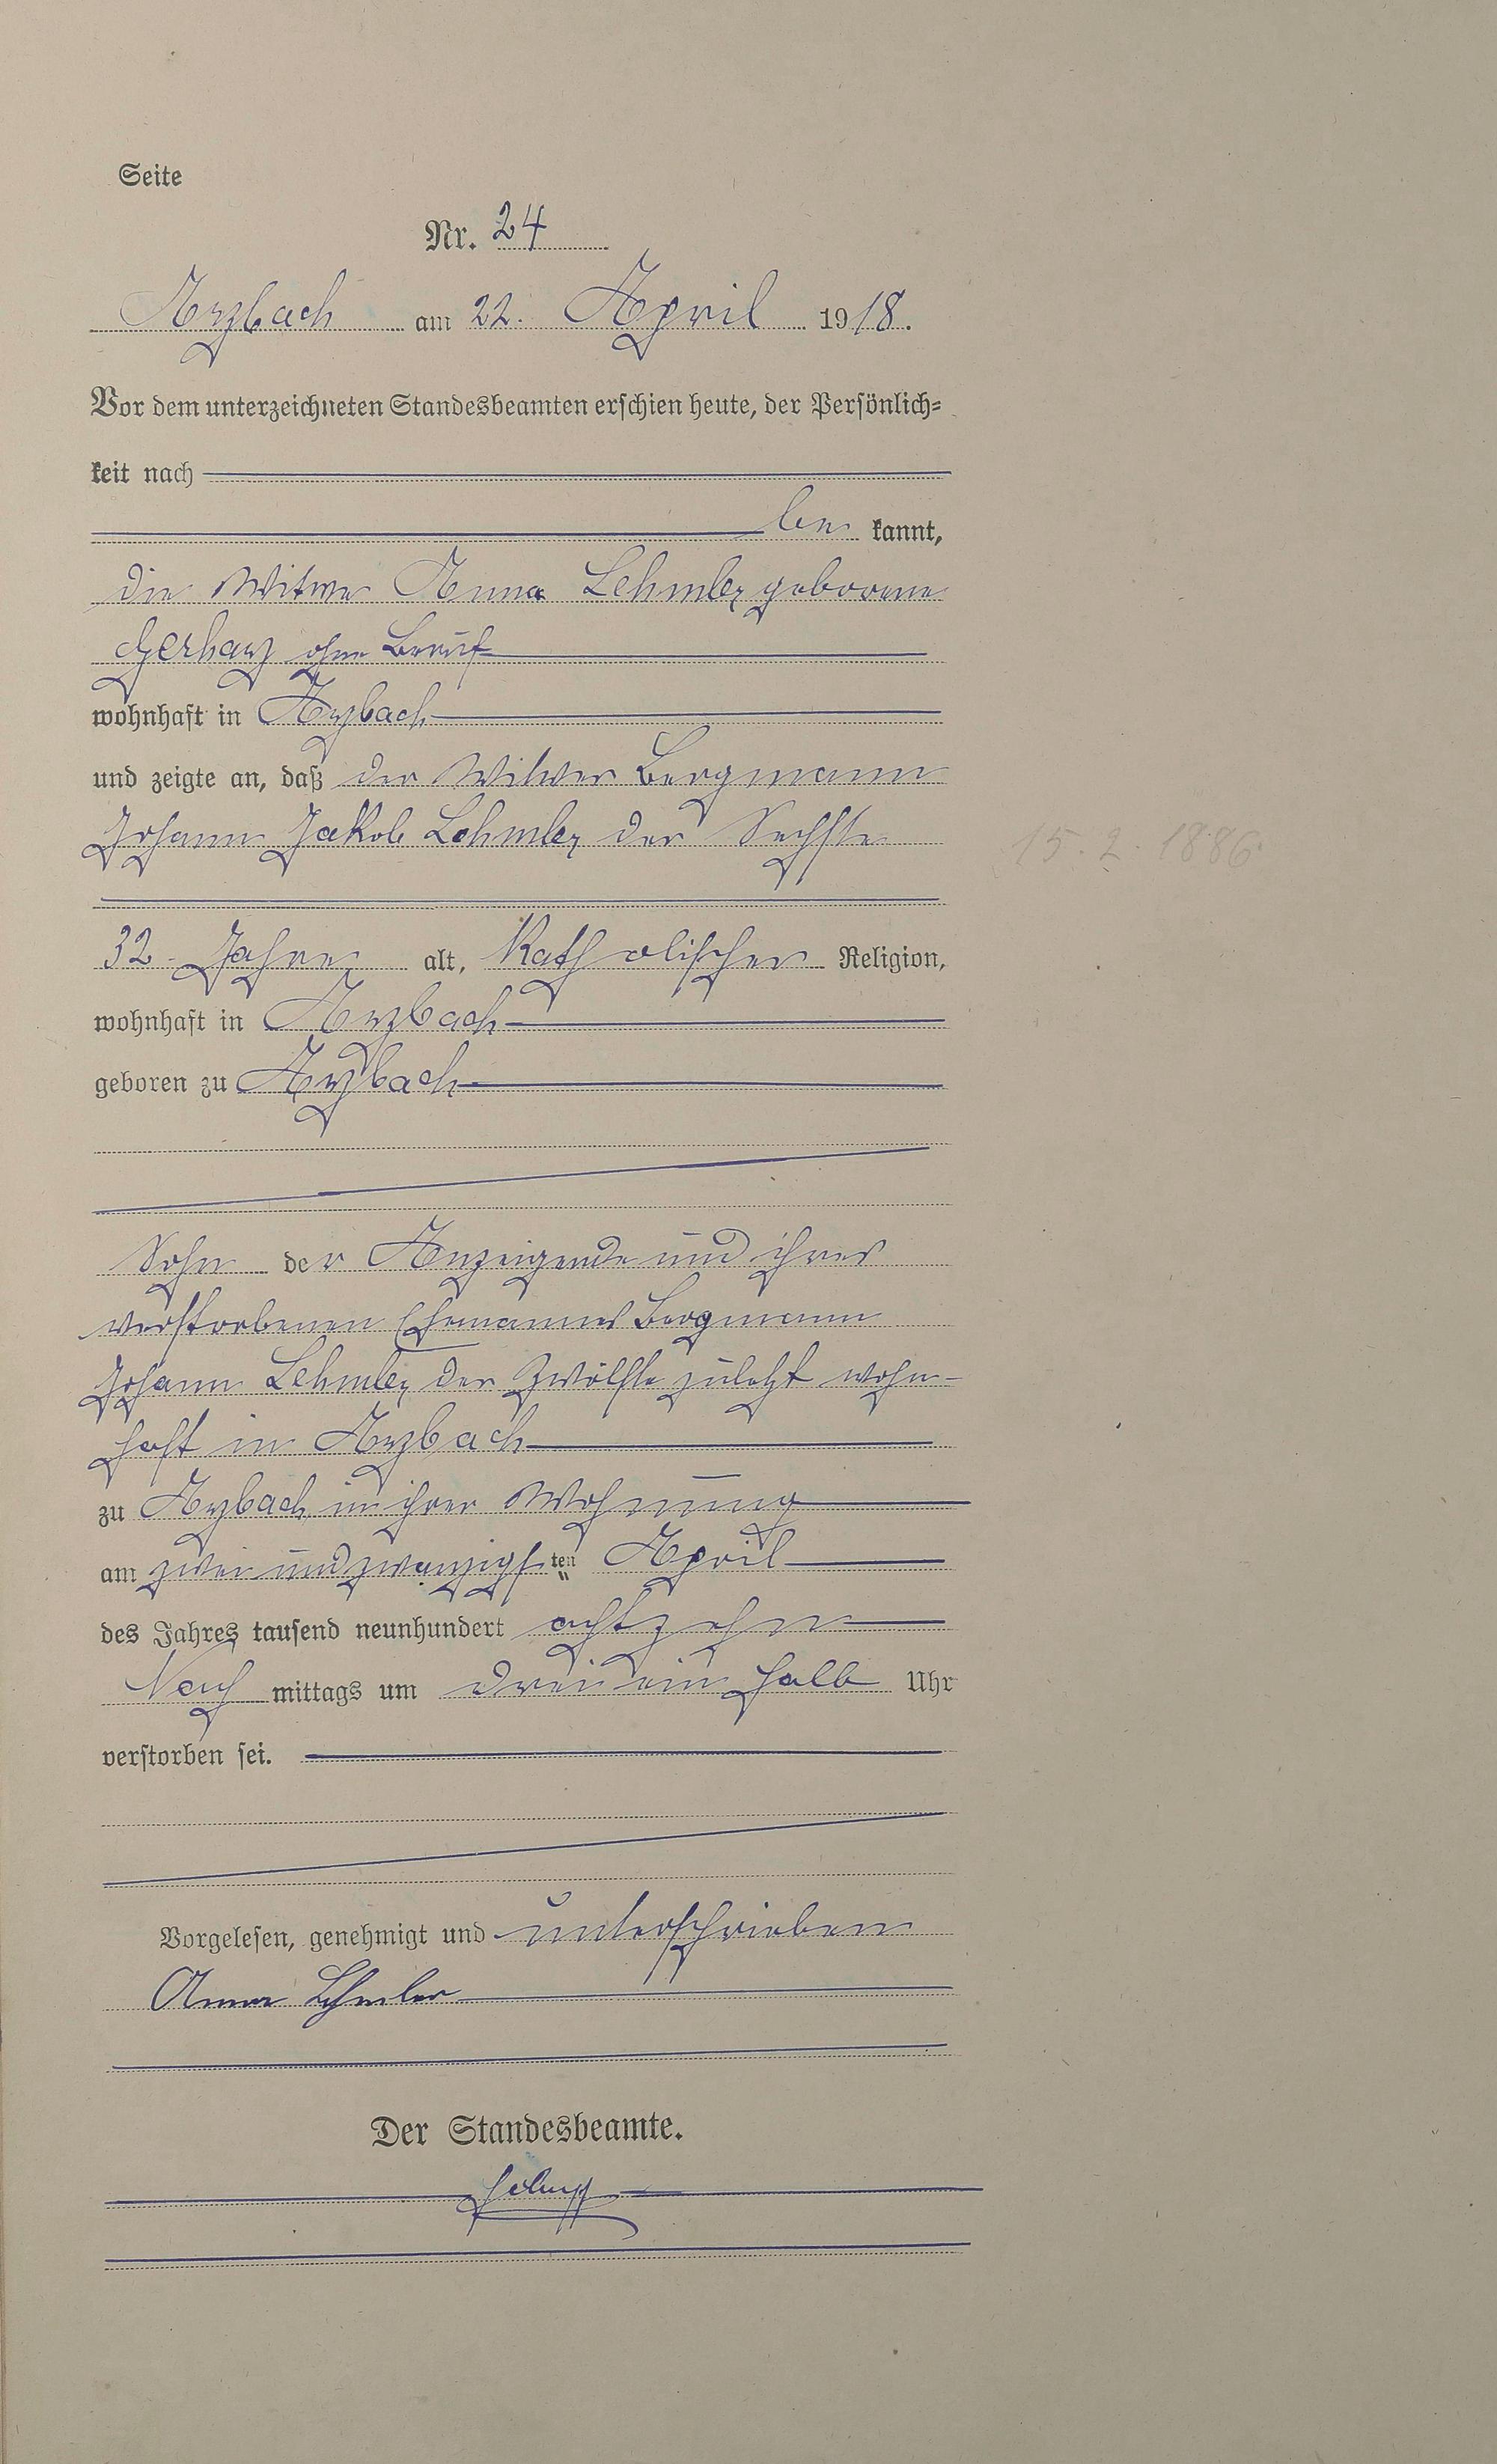 Seite
Nr. 24
Arzbach am 22. April 1918.
Vor dem unterzeichneten Standesbeamten erschien heute, der Persönlich=
keit nach
be kannt,
die Witwe Anna Lehmler geborene
Gerharz ohne Beruf
wohnhaft in Arzbach
und zeigte an, daß der Witwer Bergmann
Johann Jakob Lehmler der Sechste
15.2.1886.
32 Jahre alt, Katholischer Religion,
wohnhaft in Arzbach
geboren zu Arzbach
Sohn der Anzeigende und ihres
verstorbenen Ehemannes Bergmann
Johann Lehmler der Zwölfte zuletzt wohn-
haft in Arzbach
zu Arzbach in ihrer Wohnung
am zwei und zwanzigsten April
des Jahres tausend neunhundert achtzehn
Nach mittags um drei ein halb Uhr
verstorben sei.
Vorgelesen, genehmigt und unterschrieben
Anna Lehmler
Der Standesbeamte.